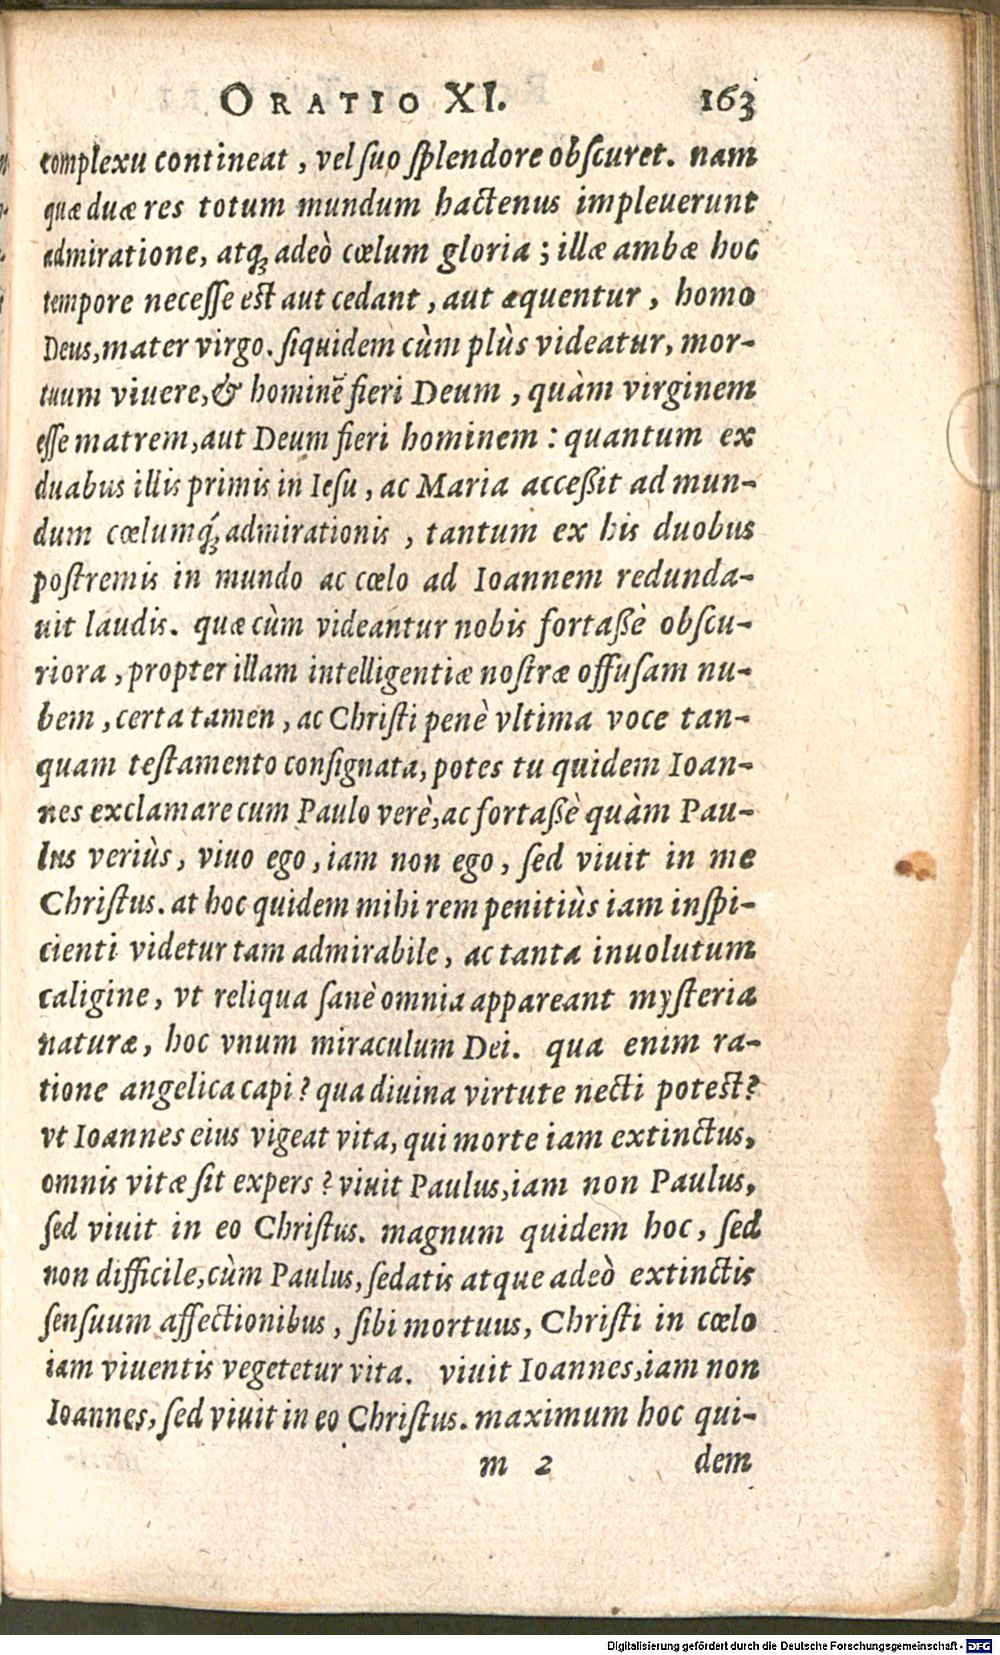 ORATIO XI. 163
complexu contineat, vel suo splendore obscuret. nam
quæ duæ res totum mundum hactenus impleuerunt
admiratione, atq; adeò cœlum gloria; illæ ambæ hoc
tempore necesse est aut cedant, aut æquentur, homo
Deus, mater virgo. siquidem cùm plùs videatur, mor-
tuum viuere, & hominē fieri Deum, quàm virginem
esse matrem, aut Deum fieri hominem: quantum ex
duabus illis primis in Iesu, ac Maria accessit ad mun-
dum cœlumq́; admirationis, tantum ex his duobus
postremis in mundo ac cœlo ad Ioannem redunda-
uit laudis. quæ cùm videantur nobis fortaßè obscu-
riora, propter illam intelligentiæ nostræ offusam nu-
bem, certa tamen, ac Christi penè vltima voce tan-
quam testamento consignata, potes tu quidem Ioan-
nes exclamare cum Paulo verè, ac fortaßè quàm Pau-
lus veriùs, viuo ego, iam non ego, sed viuit in me
Christus. at hoc quidem mihi rem penitiùs iam inspi-
cienti videtur tam admirabile, ac tanta inuolutum
caligine, vt reliqua sanè omnia appareant mysteria
naturæ, hoc vnum miraculum Dei. qua enim ra-
tione angelica capi? qua diuina virtute necti potest?
vt Ioannes eius vigeat vita, qui morte iam extinctus,
omnis vitæ sit expers? viuit Paulus, iam non Paulus,
sed viuit in eo Christus. magnum quidem hoc, sed
non difficile, cùm Paulus, sedatis atque adeò extinctis
sensuum affectionibus, sibi mortuus, Christi in cœlo
iam viuentis vegetetur vita. viuit Ioannes, iam non
Ioannes, sed viuit in eo Christus. maximum hoc qui-
m 2 dem
Digitalisierung gefördert durch die Deutsche Forschungsgemeinschaft - DFG